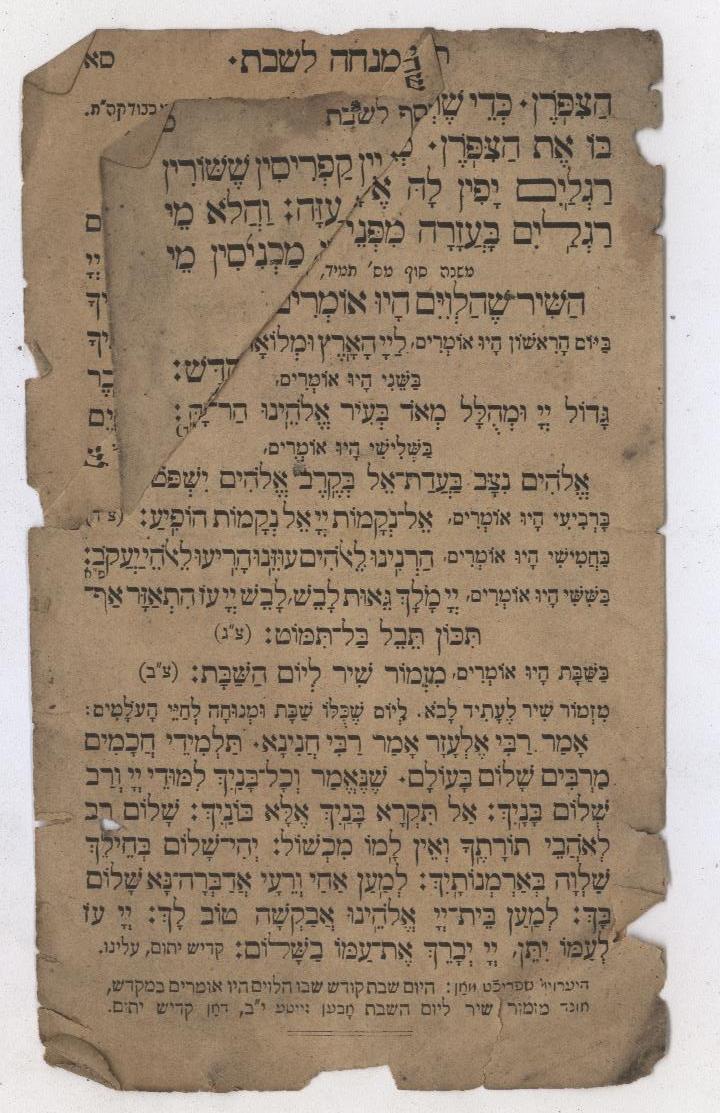 מנחה לשבת· סא
הַצִּפֹּרֶן· כְּדֵי
סף לשבת
בּוֹ אֶת הַצִּפֹּרֶן·
יֵין קַפְרִיסִין שֶׁשּׁוֹרִין
רַגְלַיִם יָפִין לָהּ
עַזָּה: וַהֲלֹא מֵי
רַגְלַיִם בָּעֲזָרָה מִפְּנֵי
מַכְנִיסִין מֵי
משנה סוף מס' תמיד,
הַשִּׁיר שֶׁהַלְוִיִּם הָיוּ אוֹמְרִים
בַּיּוֹם הָרִאשׁוֹן הָיוּ אוֹמְרִים, לַיְיָ הָאָרֶץ וּמְלוֹאָהּ
בַּשֵּׁנִי הָיוּ אוֹמְרִים,
גָּדוֹל יְיָ וּמְהֻלָּל מְאֹד בְּעִיר אֱלֹהֵינוּ הַר
בַּשְּׁלִישִׁי הָיוּ אוֹמְרִים,
אֱלֹהִים נִצָּב בַּעֲדַת־אֵל בְּקֶרֶב אֱלֹהִים יִשְׁפֹּט
בָּרְבִיעִי הָיוּ אוֹמְרִים, אֵל־נְקָמוֹת יְיָ אֵל נְקָמוֹת הוֹפִיעַ: (צ"ד)
בַּחֲמִישִׁי הָיוּ אוֹמְרִים, הַרְנִינוּ לֵאלֹהִים עוּזֵּנוּ הָרִיעוּ לֵאלֹהֵי יַעֲקֹב:
בַּשִּׁשִּׁי הָיוּ אוֹמְרִים, יְיָ מָלָךְ גֵּאוּת לָבֵשׁ, לָבֵשׁ יְיָ עֹז הִתְאַזָּר אַף־
תִּכּוֹן תֵּבֵל בַּל־תִּמּוֹט: (צ"ג)
בַּשַּׁבָּת הָיוּ אוֹמְרִים, מִזְמוֹר שִׁיר לְיוֹם הַשַּׁבָּת: (צ"ב)
מִזְמוֹר שִׁיר לֶעָתִיד לָבֹא. לְיוֹם שֶׁכֻּלּוֹ שַׁבָּת וּמְנוּחָה לְחַיֵּי הָעוֹלָמִים:
אָמַר רַבִּי אֶלְעָזָר אָמַר רַבִּי חֲנִינָא· תַּלְמִידֵי חֲכָמִים
מַרְבִּים שָׁלוֹם בָּעוֹלָם· שֶׁנֶּאֱמַר וְכָל־בָּנַיִךְ לִמּוּדֵי יְיָ וְרַב
שְׁלוֹם בָּנָיִךְ: אַל תִּקְרָא בָּנָיִךְ אֶלָּא בּוֹנָיִךְ: שָׁלוֹם רָב
לְאֹהֲבֵי תוֹרָתֶךָ וְאֵין לָמוֹ מִכְשׁוֹל: יְהִי־שָׁלוֹם בְּחֵילֵךְ
שַׁלְוָה בְּאַרְמְנוֹתָיִךְ: לְמַעַן אַחַי וְרֵעָי אֲדַבְּרָה־נָּא שָׁלוֹם
בָּךְ: לְמַעַן בֵּית־יְיָ אֱלֹהֵינוּ אֲבַקְשָׁה טוֹב לָךְ: יְיָ עֹז
לְעַמּוֹ יִתֵּן, יְיָ יְבָרֵךְ אֶת־עַמּוֹ בַשָּׁלוֹם: קדיש יתום, עלינו.
היום שבת קודש שבו הלוים היו אומרים במקדש,
מזמור שיר ליום השבת י"ב, קדיש יתום.